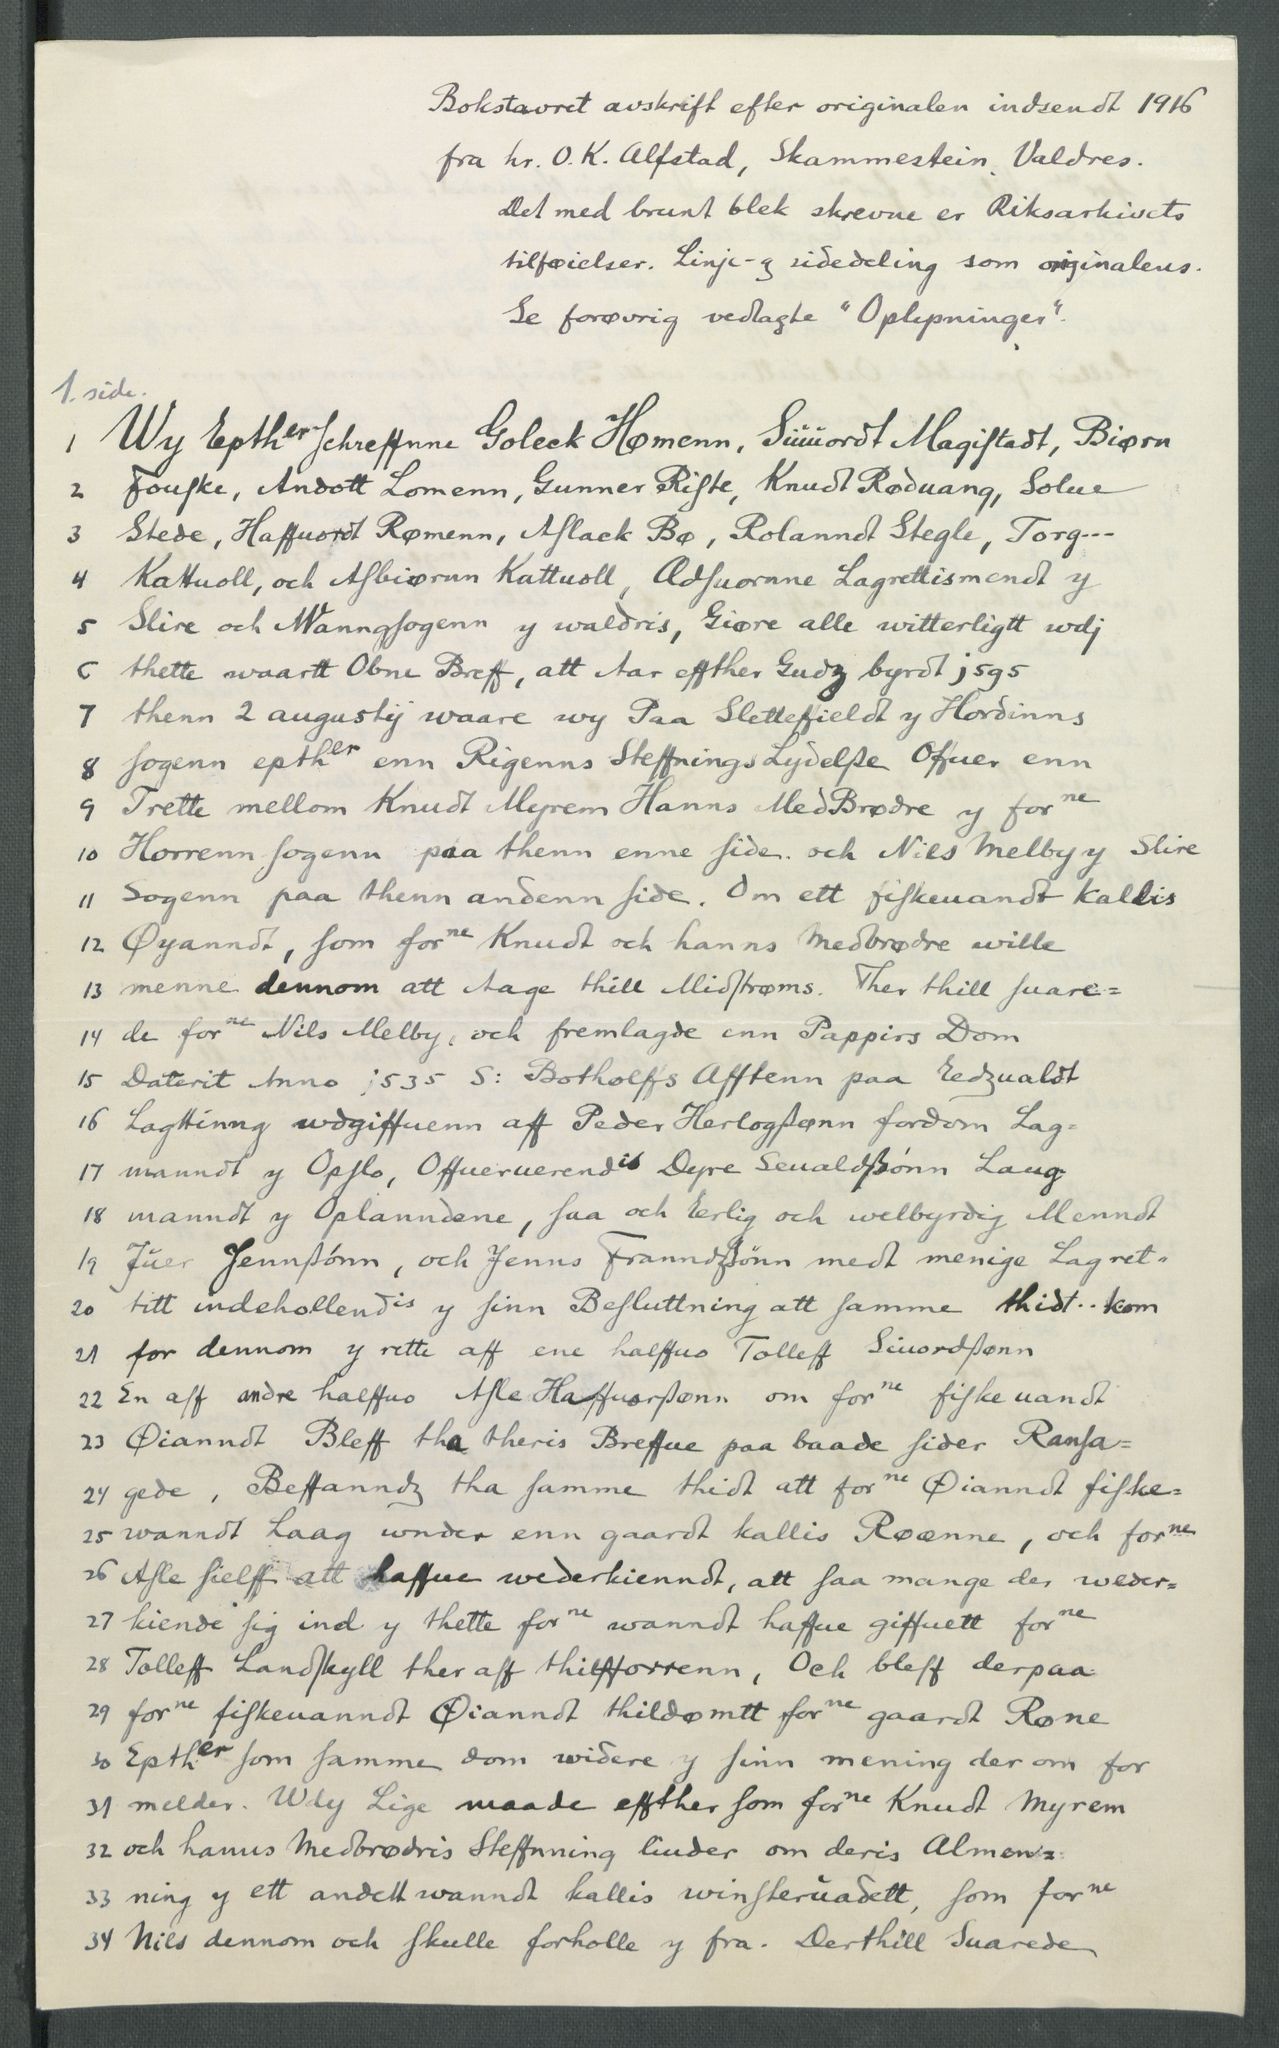 Bokstavret avskrift efter originalen indsendt 1916
fra hr. O. K. Alfstad, Skammestein, Valdres.
Det med brunt blek skrevne er Riksarkivets
tilføielser. Linje- og sidedeling som originalens.
Se forøvrig vedlagte "Oplysninger".
1. side.
1 Wy Epther schreffnne Goleck Hømenn, Süüordt Magistadt, Biørn
2 Fouske, Andott Lomenn, Gunner Riste, Knudt Røduang, Solue
3 Stede, Haffuordt Rømenn, Aslack Bø, Rolanndt Stegle, Torg---
4 Kattuoll, och Asbiørnn Kattuoll, Ædsuornne Lagrettismendt y
5 Slire och Wanngsogenn y waldris, Giøre alle witterligtt wdj
6 thette waartt Obne Breff, att Aar effther Gudz byrdt j595
7 thenn 2 augustij waare wy Paa Slettefieldt y Hordinns
8 sogenn epther enn Rigenns Steffnings Lydelße Offuer enn
9 Trette mellom Knudt Myrem Hanns MedBrødre y forne
10 Horrenn sogenn paa thenn enne side. och Nils Melby y Slire
11 Sogenn paa thenn andenn side. Om ett fiskeuandt kallis
12 Øyanndt, som forne Knudt och hanns Medbrødre wille
13 menne dennom att Aage thill Midstrøms. Ther thill suare=
14 de forne Nils Melby, och fremlagde enn Pappirs Dom
15 Daterit Anno j535 S: Botholffs Afftenn paa Eedzualdt
16 Lagttinng wdgiffuenn aff Peder Herlogßønn fordom Lag=
17 manndt y Opslo, Offueruerendis Dyre Seualdßónn Laug
18 manndt y Oplanndene, saa och Eerlig och welbyrdig Menndt
19 Jüer Jennßónn, och Jenns Franndßönn medt menige Lagret=
20 titt indehollendis y sinn Besluttning att samme thidt.. kom
21 for dennom y rette aff ene halffuo Tolleff Siuordßønn
22 En aff andre halffuo Asle Haffuorßønn om forne fiskeuandt
23 Øianndt Bleff tha theris Breffue paa baade sider Ransa=
24 gede, Beffanndz tha samme thidt att forne Øianndt fiske=
25 wanndt Laag wnder enn gaardt kallis Røænne, och forne
26 Asle sielff att haffue wederkienndt, att saa mange der weder=
27 kiende sig ind y thette forne wanndt haffue giffuett forne
28 Tolleff Landskyll ther aff thilfforrenn, Och bleff derpaa
29 forne fiskeuanndt Øianndt thildømtt forne gaardt Røne
30 Epther som samme dom widere y sinn mening der om for
31 melder. Wdy Lige maade effther som forne Knudt Myrem
32 och hanns Medbrødris Steffnning liuder om deris Almen=
33 ning y ett andett wanndt kallis winsterüadett, som forne
34 Nils dennom och skulle forholle y fra. Derthill Suarede